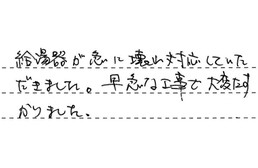 給湯器が急に壊れ対応していた
だきました。早急な工事で大変たす
かりました。